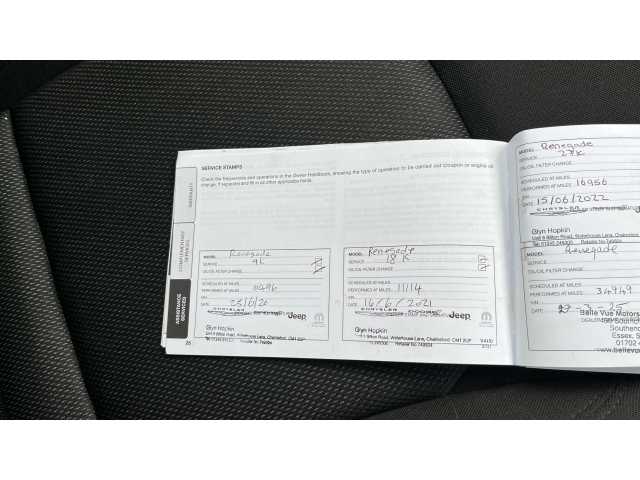 SERVICE STAMPS
Check the frequencies and operations in the Owner Handbook, showing the type of operation to be carried out (coupon or engine oil
change, if separate and fill in all other applicable fields.
WARRANTY
COMPLEMENTARY SERVICES
ASSISTANCE SERVICES
MODEL Renegade
SERVICE
OIL/OIL FILTER CHANGE
SCHEDULED AT MILES
PERFORMED AT MILES
VIN
DATE
CHRYSLER Jeep
Glyn Hopkin
26
MODEL Renegade
SERVICE 18K
OIL/OIL FILTER CHANGE
SCHEDULED AT MILES
PERFORMED AT MILES 11114
VIN
DATE 14/6/2021
CHRYSLER Jeep
Glyn Hopkin
Road, Waterhouse Lane, Chelmsford, CM1 2UP
MODEL Renegade
SERVICE 27K
OIL/OIL FILTER CHANGE
SCHEDULED AT MILES
PERFORMED AT MILES 16956
VIN
DATE 15/06/2022
CHRYSLER
Glyn Hopkin
Road, Waterhouse Lane, Chelmsford
MODEL Renegade
SERVICE
OIL/OIL FILTER CHANGE
SCHEDULED AT MILES
PERFORMED AT MILES 34949
VIN
DATE -3-25
Belle Vue Motors
Essex, S
01702
www.bellevue